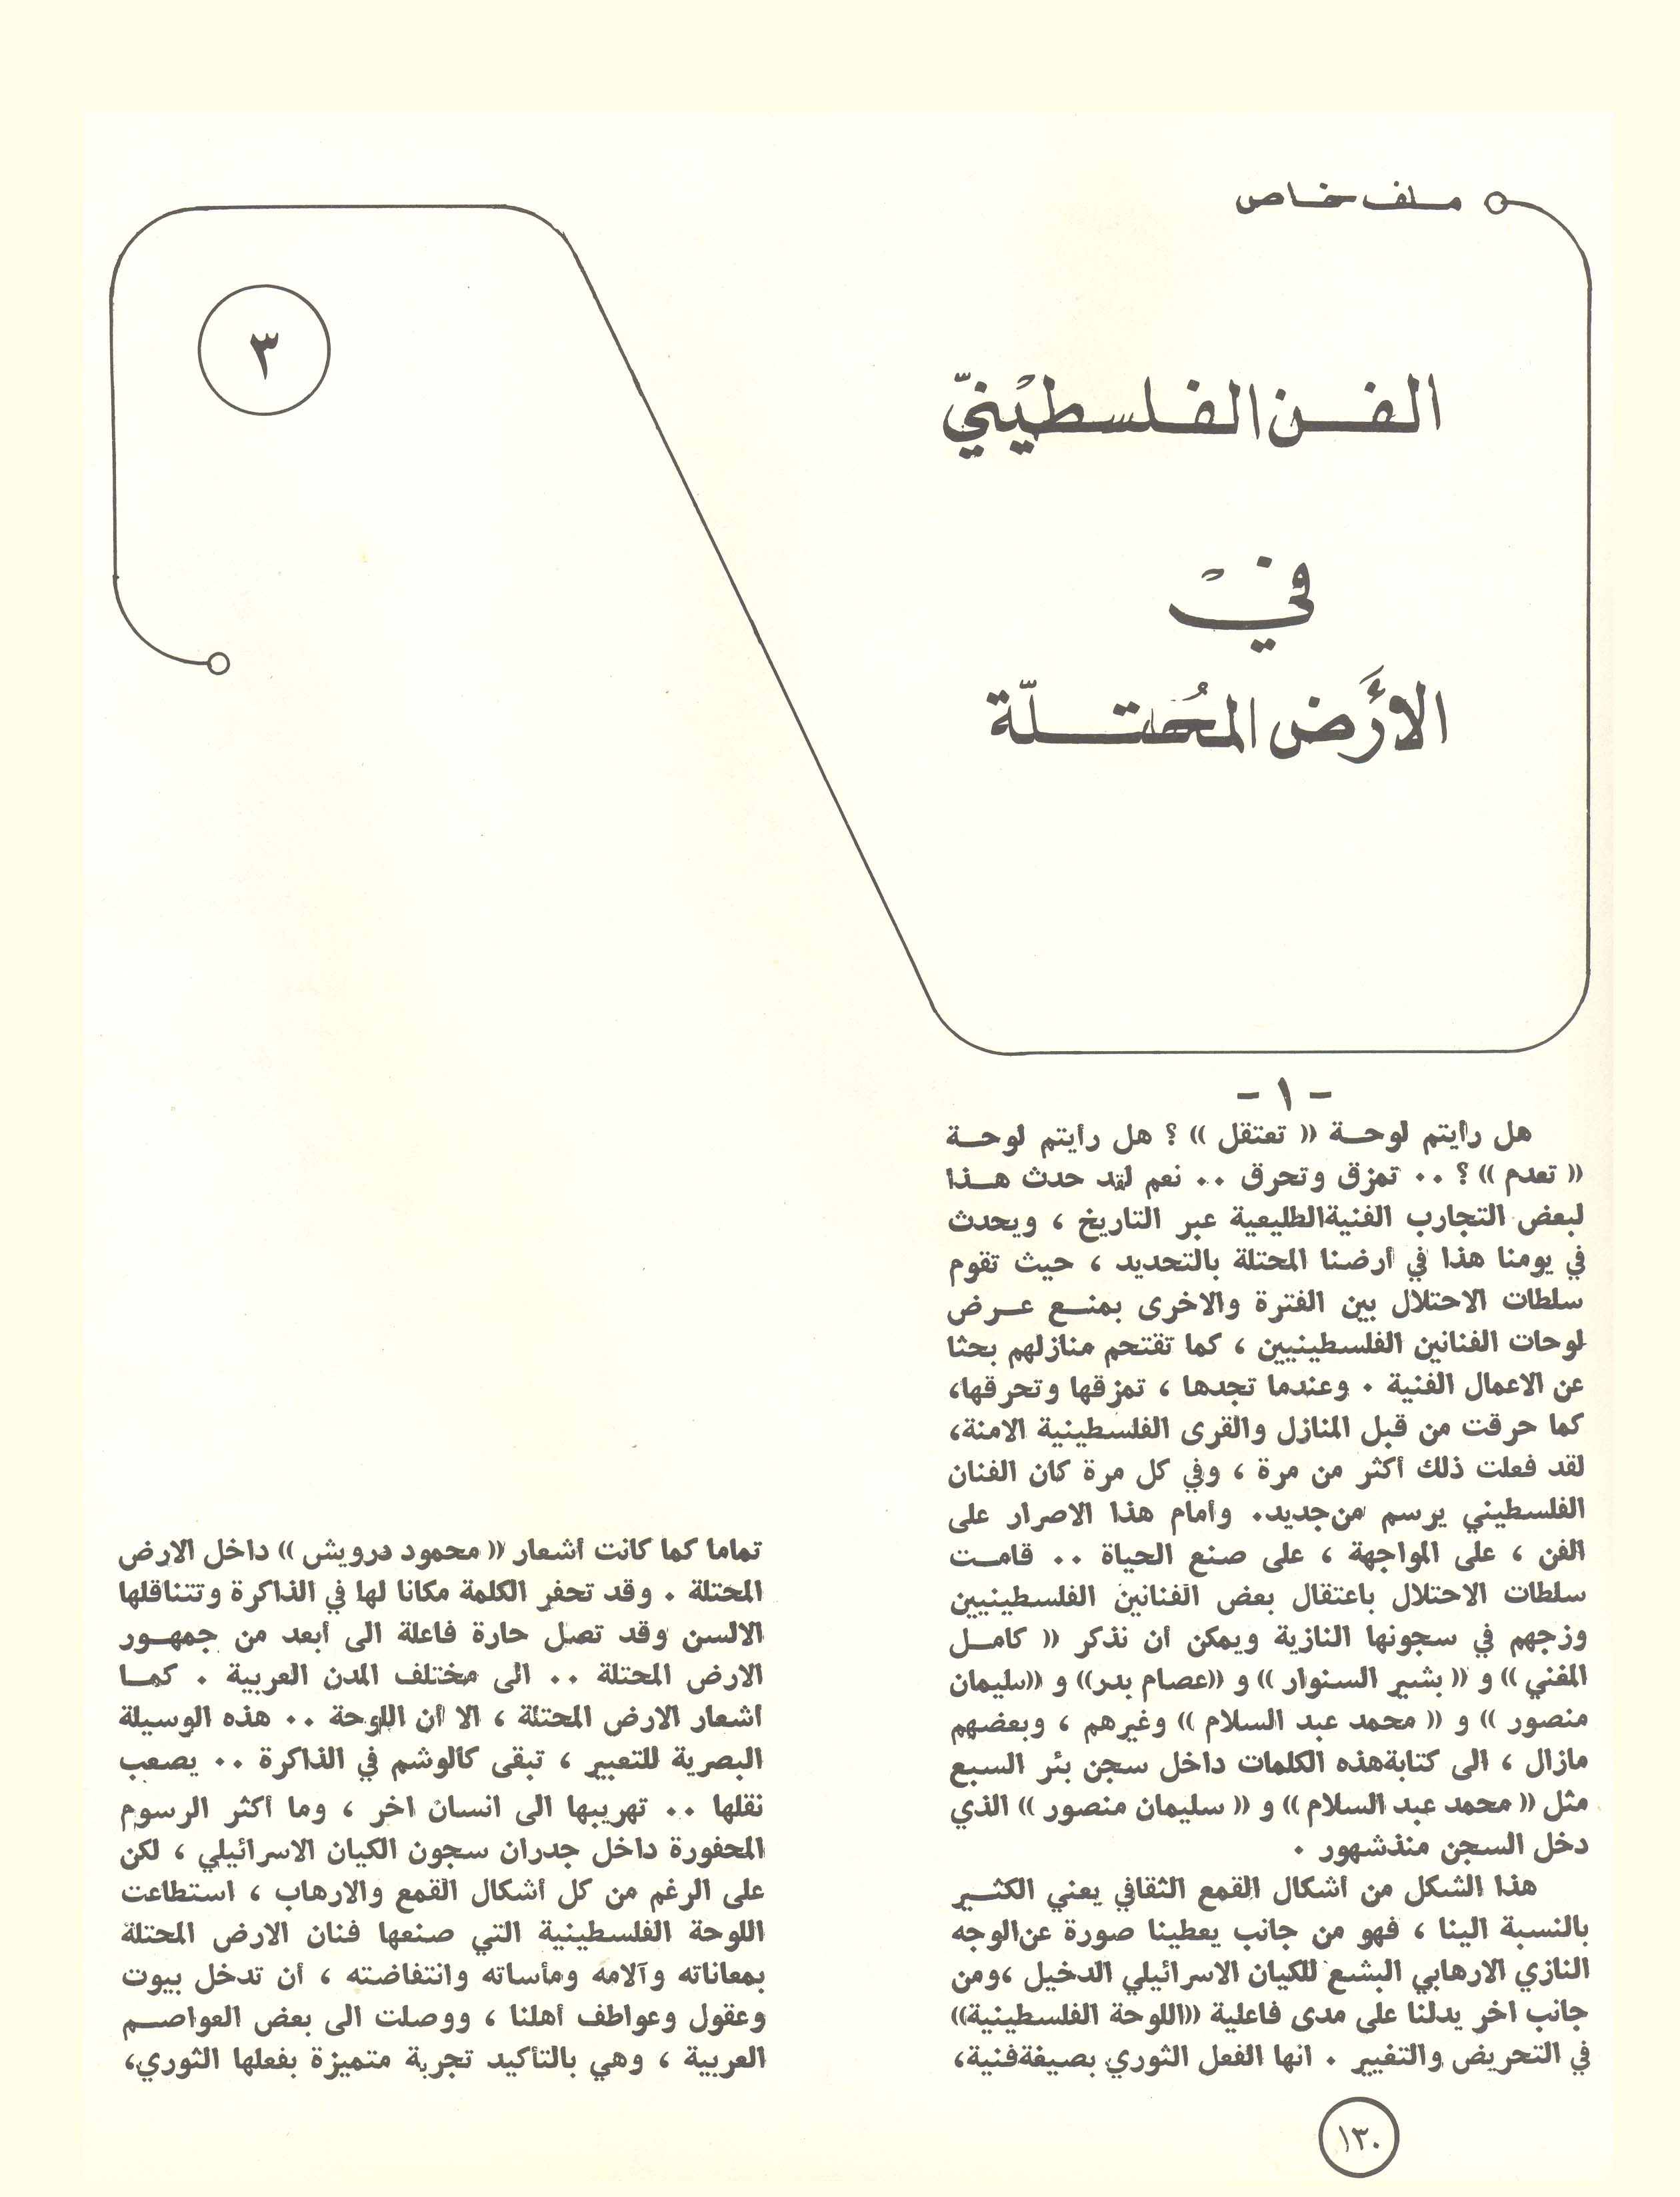 ملف خاص
٣
الفن الفلسطينيّ
في
الأرض المحتلّة
- ١ -
هل رأيتم لوحة « تعتقل » ؟ هل رأيتم لوحة
« تعدم » ؟ .. تمزق وتحرق .. نعم لقد حدث هذا
لبعض التجارب الفنية الطليعية عبر التاريخ ، ويحدث
في يومنا هذا في أرضنا المحتلة بالتحديد ، حيث تقوم
سلطات الاحتلال بين الفترة والاخرى بمنع عرض
لوحات الفنانين الفلسطينيين ، كما تقتحم منازلهم بحثا
عن الاعمال الفنية . وعندما تجدها ، تمزقها وتحرقها،
كما حرقت من قبل المنازل والقرى الفلسطينية الامنة،
لقد فعلت ذلك أكثر من مرة ، وفي كل مرة كان الفنان
الفلسطيني يرسم من جديد. وأمام هذا الاصرار على
الفن ، على المواجهة ، على صنع الحياة .. قامت
سلطات الاحتلال باعتقال بعض الفنانين الفلسطينيين
وزجهم في سجونها النازية ويمكن أن نذكر « كامل
المغني » و « بشير السنوار » و «عصام بدر» و «سليمان
منصور » و « محمد عبد السلام » وغيرهم ، وبعضهم
مازال ، الى كتابة هذه الكلمات داخل سجن بئر السبع
مثل « محمد عبد السلام » و « سليمان منصور » الذي
دخل السجن منذ شهور .
هذا الشكل من أشكال القمع الثقافي يعني الكثير
بالنسبة الينا ، فهو من جانب يعطينا صورة عن الوجه
النازي الارهابي البشع للكيان الاسرائيلي الدخيل ،ومن
جانب اخر يدلنا على مدى فاعلية «اللوحة الفلسطينية»
في التحريض والتغيير . انها الفعل الثوري بصيغة فنية،
تماما كما كانت أشعار « محمود درويش » داخل الارض
المحتلة . وقد تحفر الكلمة مكانا لها في الذاكرة وتتناقلها
الالسن وقد تصل حارة فاعلة الى أبعد من جمهور
الارض المحتلة .. الى مختلف المدن العربية . كما
اشعار الارض المحتلة ، الا أن اللوحة .. هذه الوسيلة
البصرية للتعبير ، تبقى كالوشم في الذاكرة .. يصعب
نقلها .. تهريبها الى انسان اخر ، وما أكثر الرسوم
المحفورة داخل جدران سجون الكيان الاسرائيلي ، لكن
على الرغم من كل أشكال القمع والارهاب ، استطاعت
اللوحة الفلسطينية التي صنعها فنان الارض المحتلة
بمعاناته وآلامه ومأساته وانتفاضته ، أن تدخل بيوت
وعقول وعواطف أهلنا ، ووصلت الى بعض العواصم
العربية ، وهي بالتأكيد تجربة متميزة بفعلها الثوري،
١٣٠